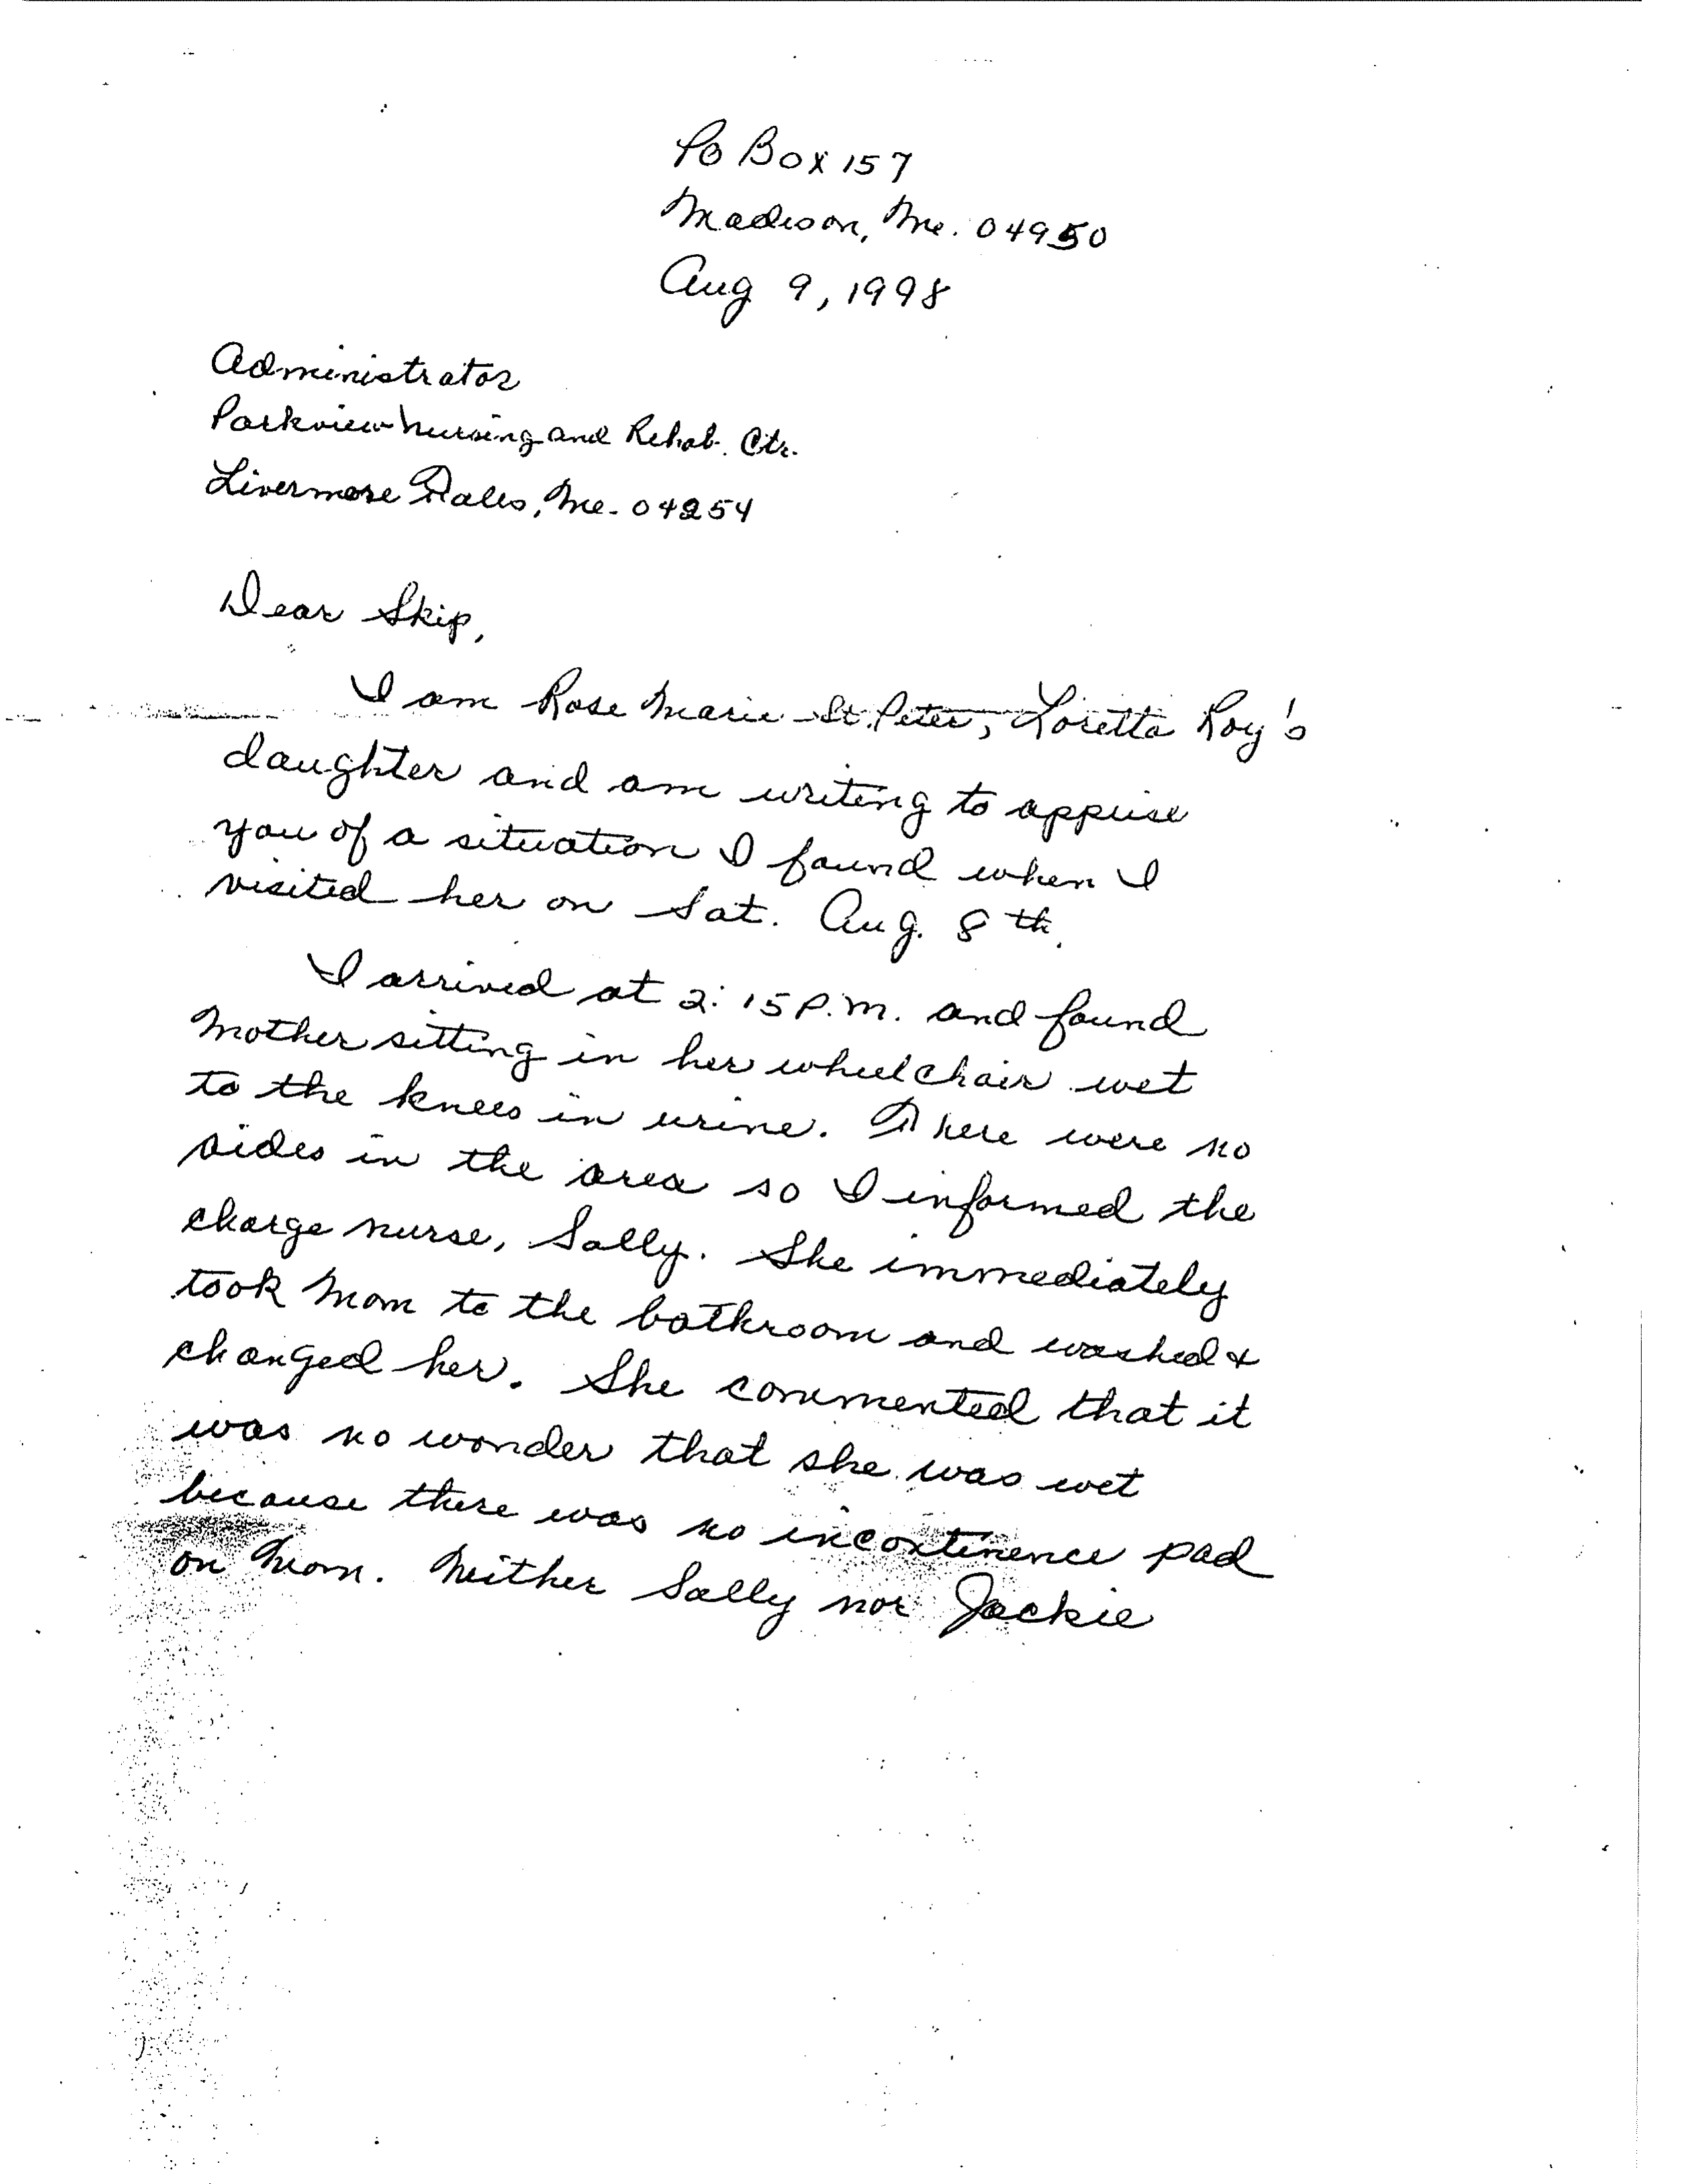 PO Box 157
Madison, Me. 04950
Aug 9, 1998
Administrator
Parkview Nursing and Rehab. Ctr.
Livermore Falls, Me. 04254
Dear Skip,
I am Rose Marie St. Peter, Loretta Roy's
daughter and am writing to apprise
you of a situation I found when I
visited her on Sat. Aug. 8th.
I arrived at 2:15 P.M. and found
Mother sitting in her wheelchair wet
to the knees in urine. There were no
aides in the area so I informed the
charge nurse, Sally. She immediately
took Mom to the bathroom and washed &
changed her. She commented that it
was no wonder that she was wet
because there was no incontinence pad
on Mom. Neither Sally nor Jackie